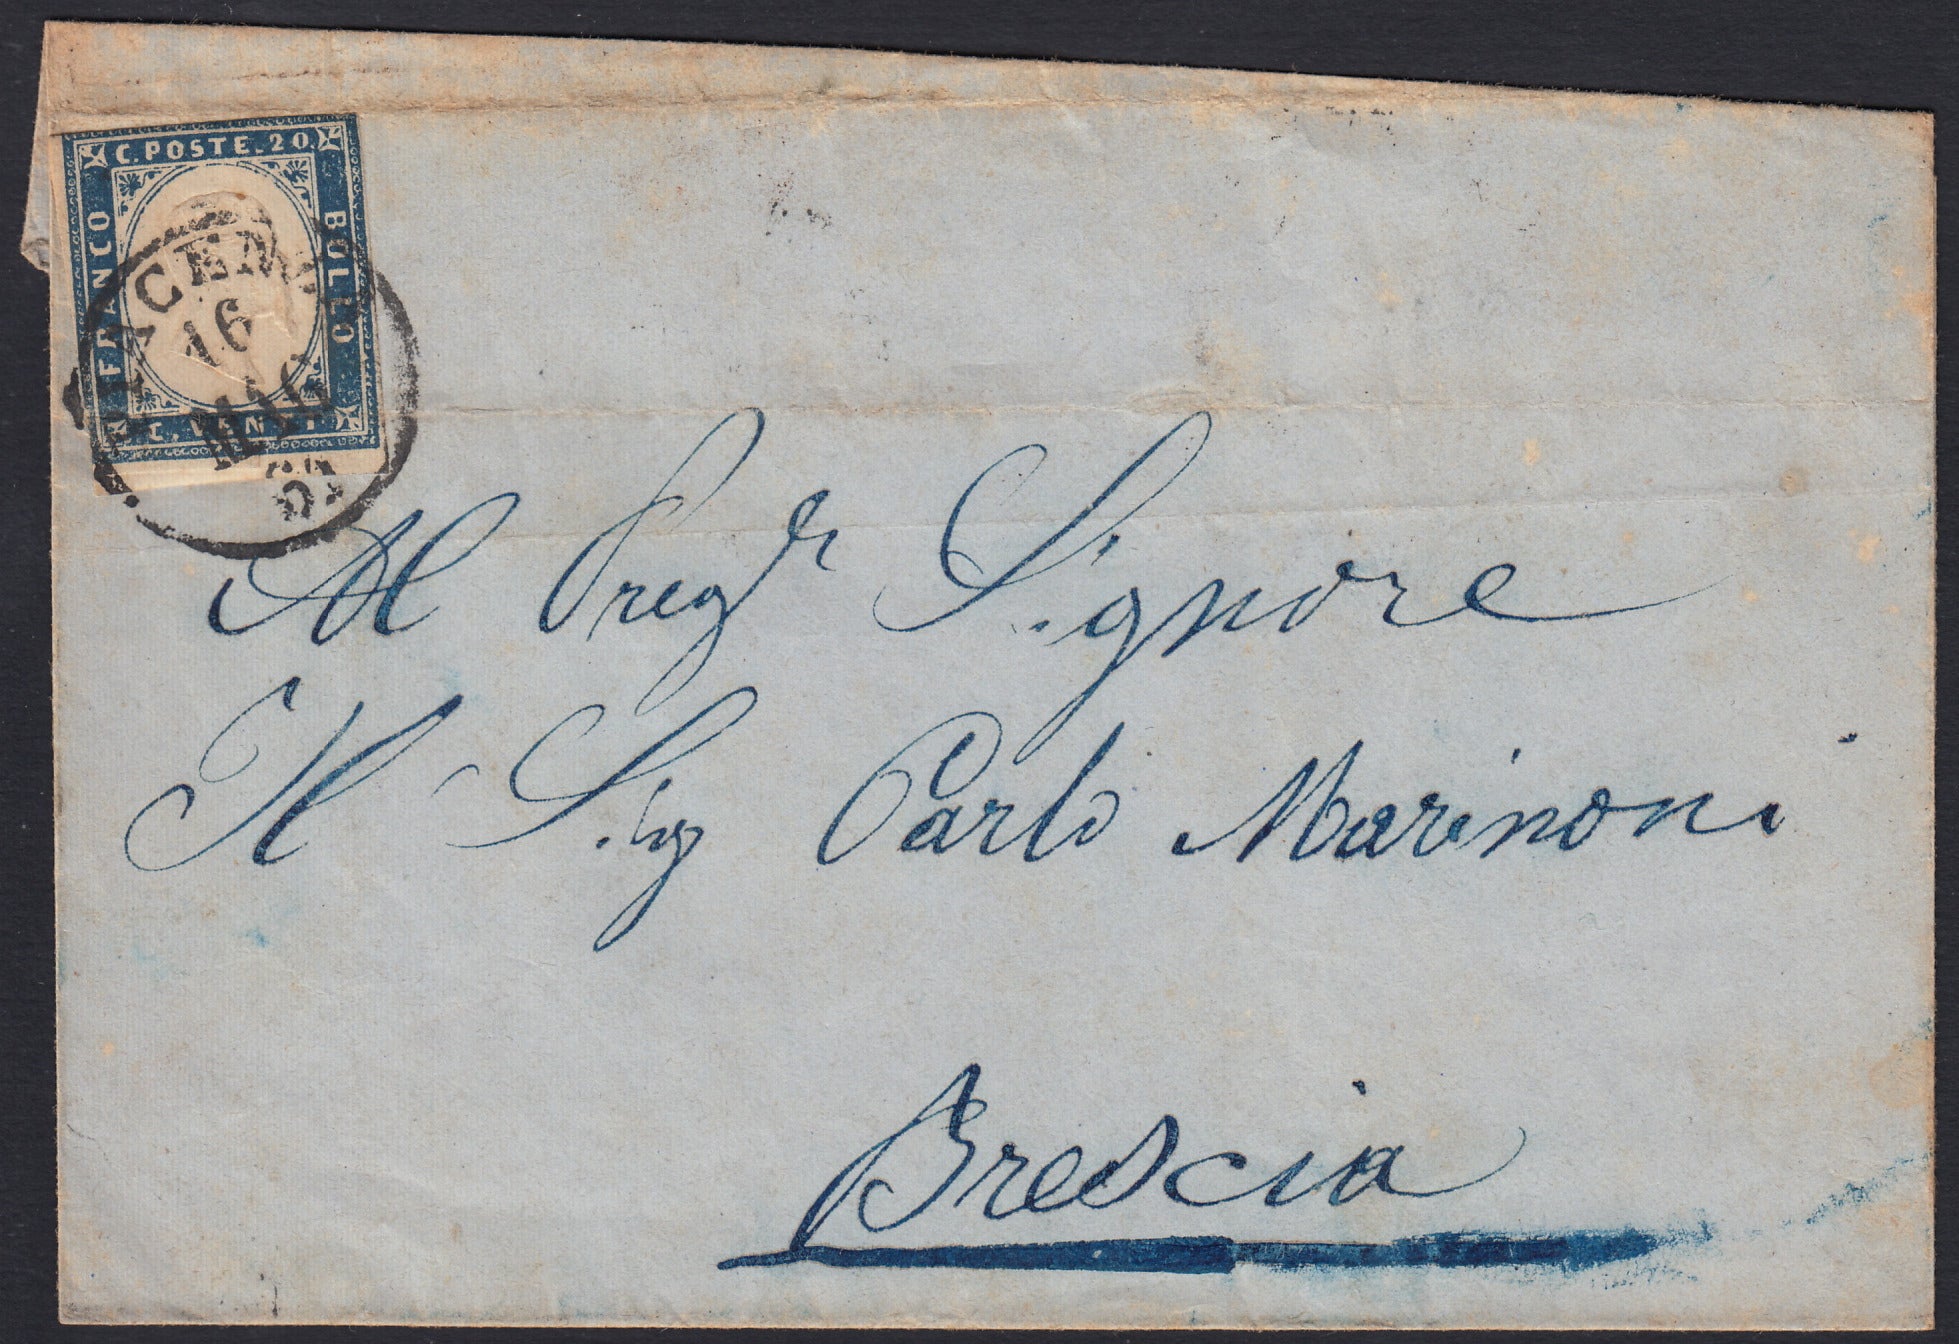 C. POSTE. 20.
FRANCO
BOLLO
C. VENTI.
PIACENZA
16
MAG
61
Al Preg.r Signore
Il Sig Carlo Marinoni
Brescia